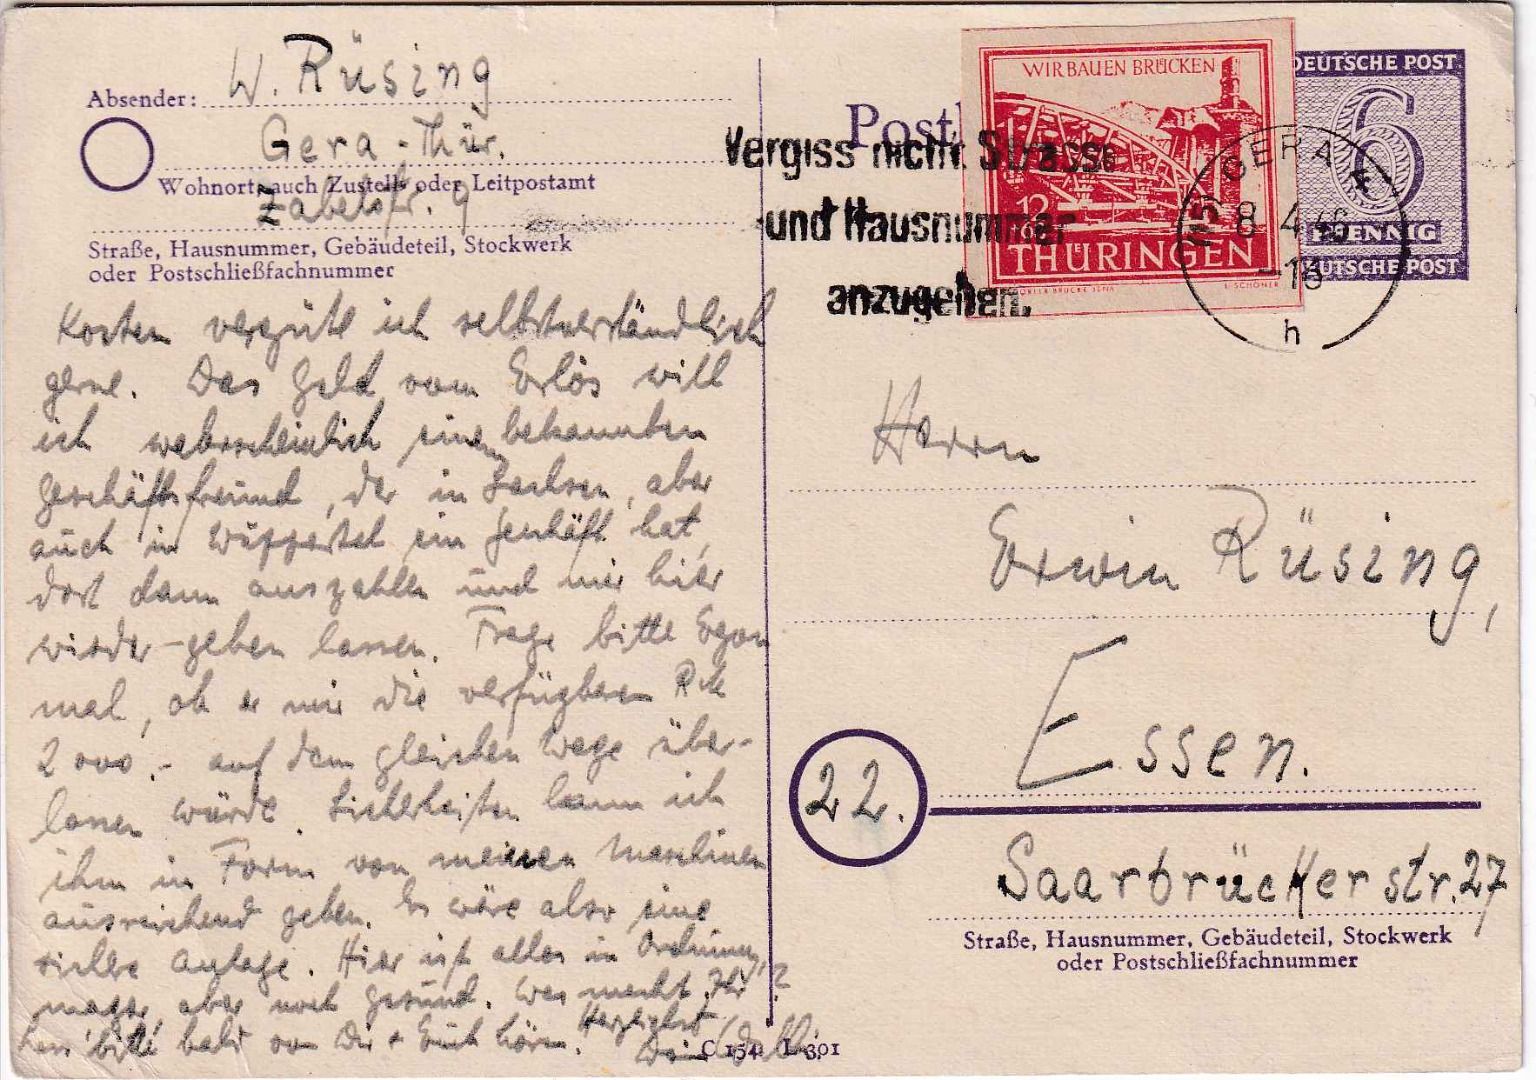 Absender: W. Rüsing
Gera-Thür.
Wohnort, auch Zustell- oder Leitpostamt
Zabelstr. 9
Straße, Hausnummer, Gebäudeteil, Stockwerk
oder Postschließfachnummer
Kosten vergüte ich selbstverständlich
gerne. Das Geld vom Erlös will
ich wahrscheinlich einen bekannten
Geschäftsfreund, der in Sachsen, aber
auch in Wuppertal ein Geschäft hat,
dort dann auszahlen und mir hier
wieder-geben lassen. Frage bitte Egon
mal, ob er mir die verfügbaren
2000.- auf dem gleichen Wege über-
lassen würde. Sicherheiten kann ich
ihm in Form von meinen Maschinen
ausreichend geben. Es wäre also eine
sichere Anlage. Hier ist alles in Ordnung,
mager, aber noch gesund. Was macht Ihr?
bitte bald von Dir + Euch hören. Herzlichst
Dein
C 154 L 301
Post
WIR BAUEN BRÜCKEN
12
THÜRINGEN
E. SCHÖNER
DEUTSCHE POST
6
PFENNIG
DEUTSCHE POST
Vergiss nicht Strasse
und Hausnummer
anzugeben.
GERA
8.4.46
h
Herrn
Erwin Rüsing,
Essen.
22.
Saarbrückerstr. 27
Straße, Hausnummer, Gebäudeteil, Stockwerk
oder Postschließfachnummer